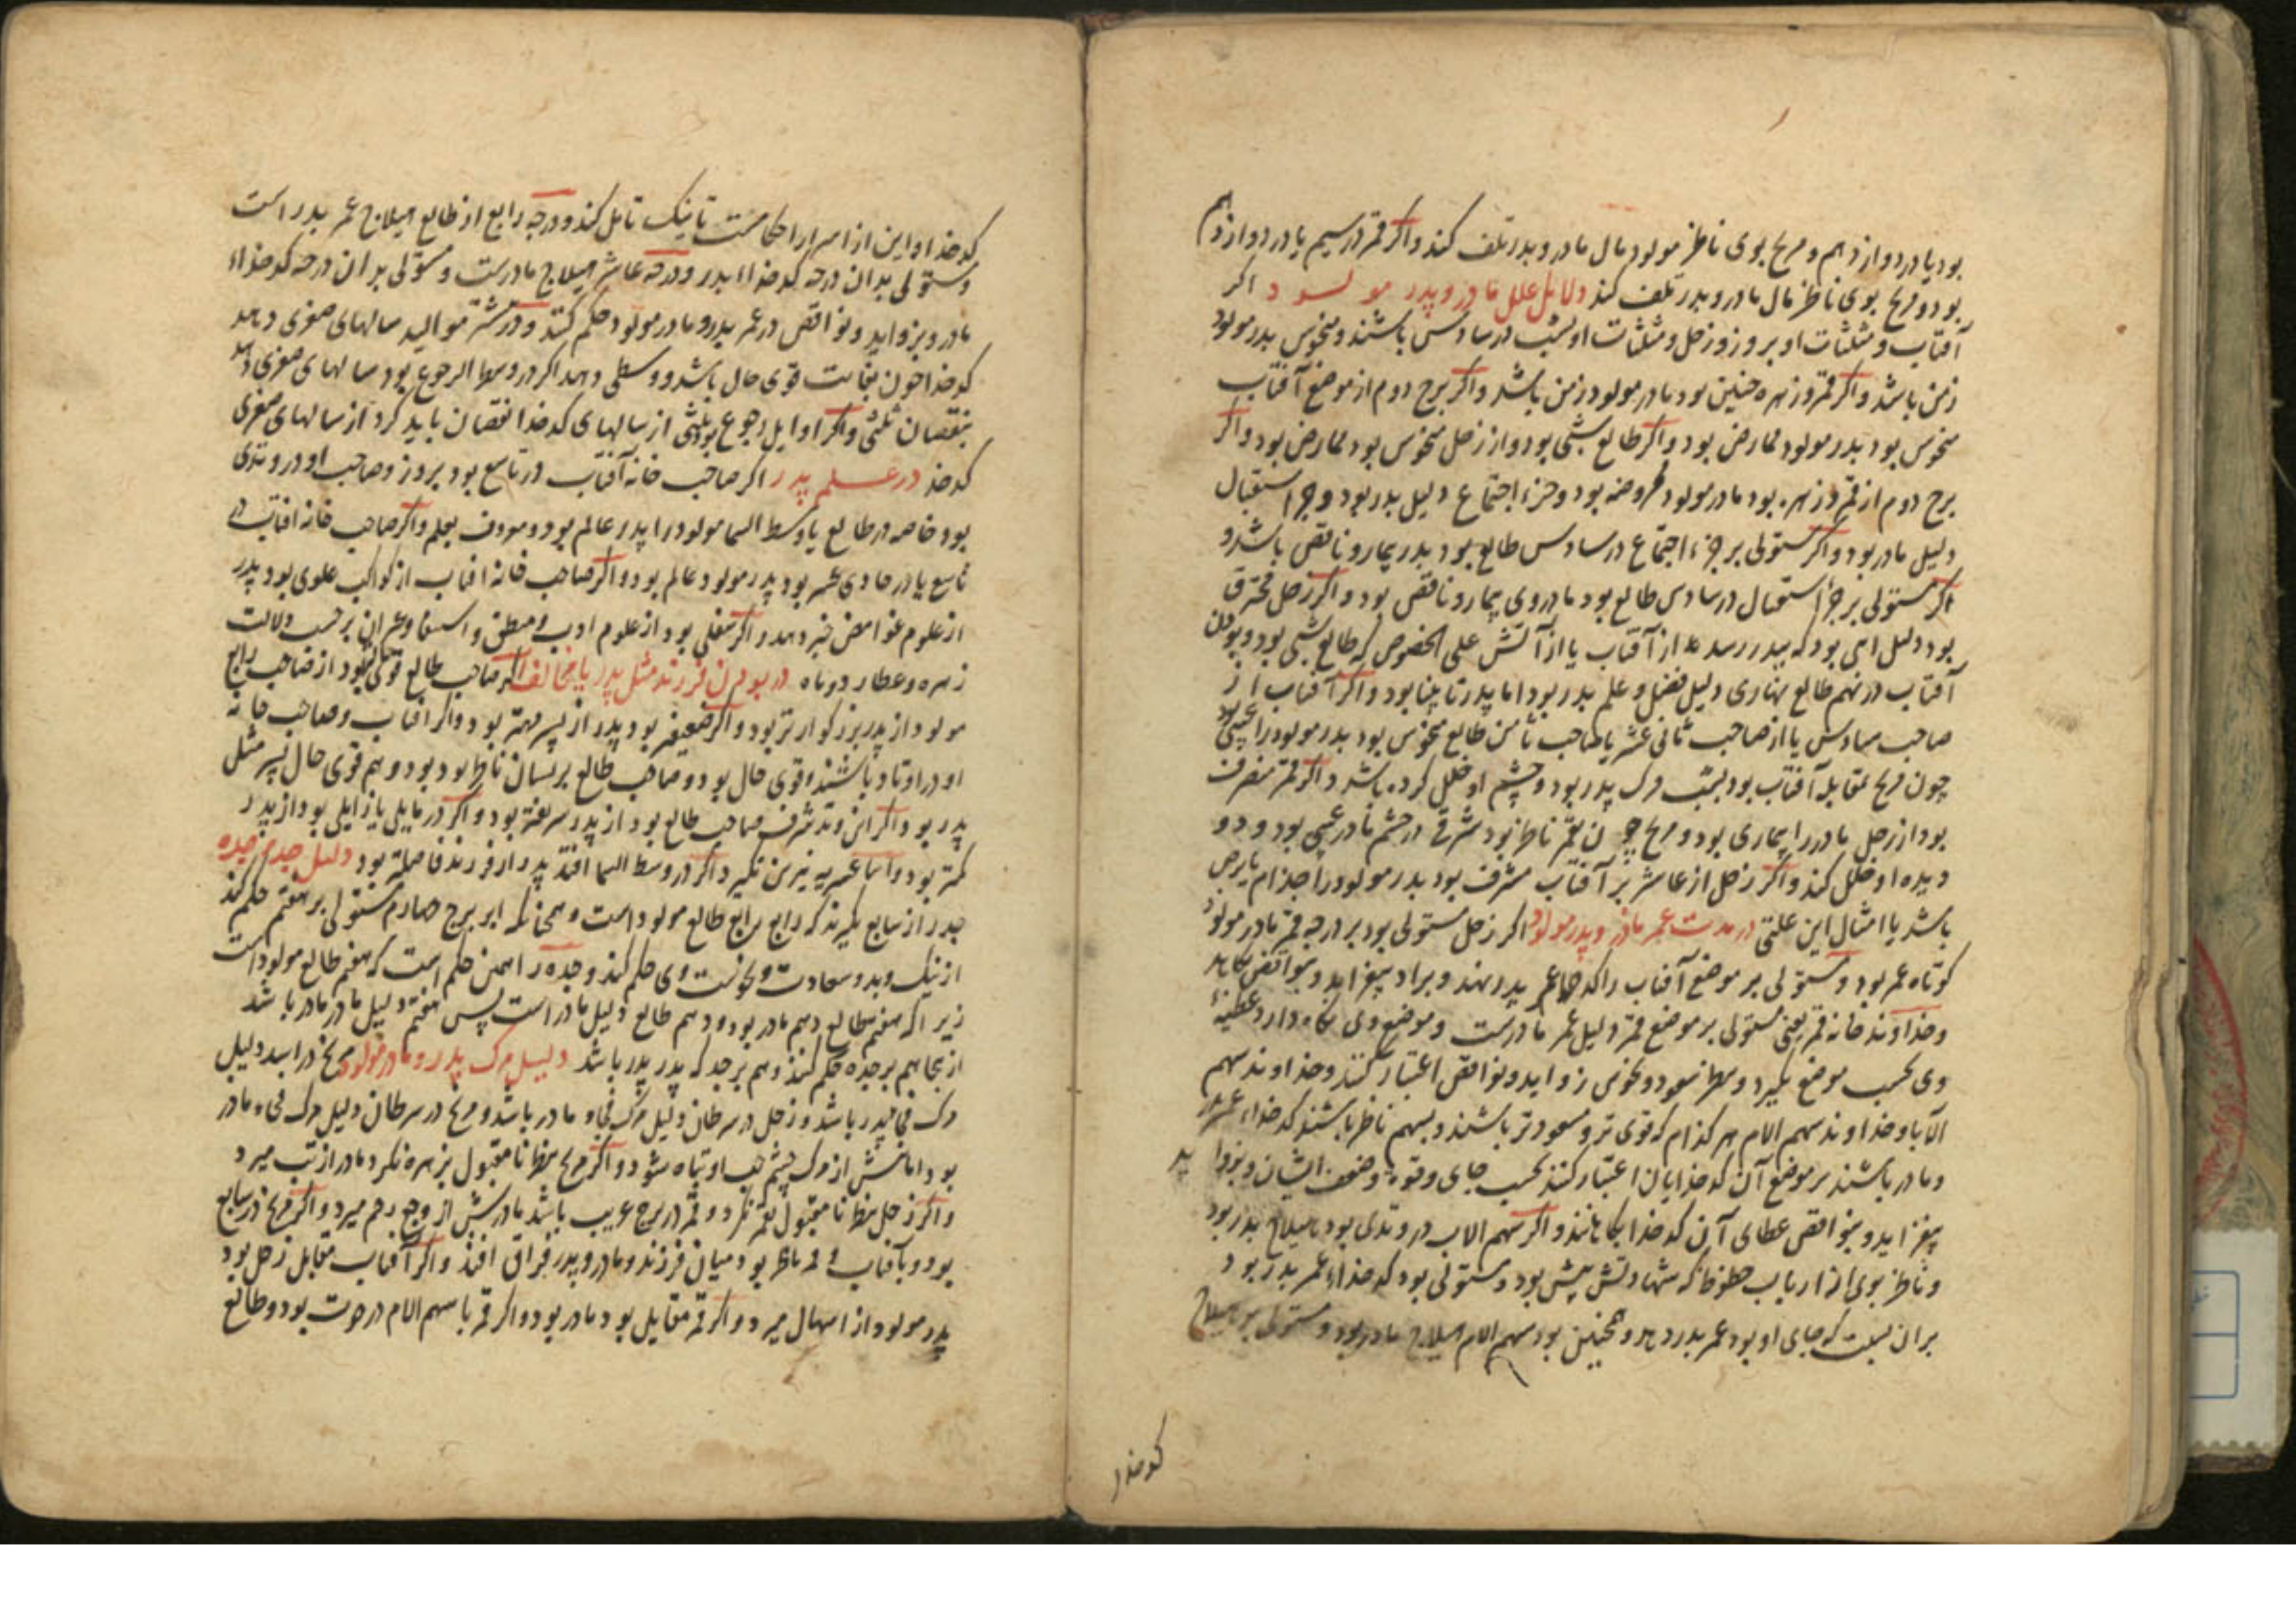 بود یا در دوازدهم و مریخ بوی ناظر مولود مال مادر و پدر تلف کند و اکر قمر در سیم یا در دوازدهم
بود و مریخ بوی ناظر مال مادر و پدر تلف کند دلایل علل مادر و پدر مولود اکر
آفتاب و مثلثات او بروز و زحل و مثلثات او بشب در سادس باشند و منحوس پدر مولود
زمن باشد و اکر قمر و زهره چنین بود مادر مولود زمن باشد و اکر برج دوم از موضع آفتاب
منحوس بود پدر مولود ممارض بود و اکر طالع شبی بود و از زحل منحوس بود ممارض بود و اکر
برج دوم از قمر و زهره بود مادر مولود بود و جزء اجتماع دلیل پدر بود و جزء استقبال
دلیل مادر بود و اکر مستولی بر جزء اجتماع در سادس طالع بود پدر بیمار و ناقص باشد و
اکر مستولی بر جزء استقبال در سادس طالع بود مادر وی بیمار و ناقص بود و اکر زحل محترق
بود دلیل المی بود که بپدر رسد از آفتاب یا از آتش علی الخصوص که طالع شبی بود و بودن
آفتاب در نهم طالع نهاری دلیل فضل و علم پدر بود اما پدر نابینا بود و اکر آفتاب از
صاحب سادس یا از صاحب ثانی عشر یا صاحب ثامن طالع منحوس بود پدر مولود را عیبی بود
چون مریخ مقابله آفتاب بود بشب مرک پدر بود و چشم او خلل کرده باشد و اکر قمر منصرف
بود از زحل مادر را بیماری بود و مریخ چون بقمر ناظر بود شرقی در چشم مادر عیبی بود و دو
دیده او خلل کند و اکر زحل از عاشر بر آفتاب مشرف بود پدر مولود را جذام یا برص
باشد یا امثال این علتی در مدت عمر مادر و پدر مولود اکر زحل مستولی بود بر درجه قمر مادر مولود
کوتاه عمر بود و مستولی بر موضع آفتاب را کدخدا عمر پدر نهند و بزواید بیفزاید و بنواقص بکاهد
و خداوند خانه قمر یعنی مستولی بر موضع قمر دلیل عمر مادرست و موضع وی نکاه دارد و عطیه
وی بحسب موضع بکیرد و بنظر سعود و نحوس زواید و نواقص اعتبار کنند و خداوند سهم
الآبا و خداوند سهم الام هر کدام که قوی تر و مسعودتر باشند و بسهم ناظر باشند کدخداء عمر پدر
و مادر باشند بر موضع آن کدخدایان اعتبار کنند بحسب جای و قوة و ضعف ایشان و بزواید
بیفزاید و بنواقص عطای آن کدخدا بکاهانند و اکر سهم الاب در وتدی بود هیلاج پدر بود
و ناظر بوی از ارباب حظوظ که شهادتش بیش بود و مستولی بود کدخداء عمر پدر بود
بران نسبت که جای او بود عمر پدر دهد و همچنین بود سهم الام هیلاج مادر بود و مستولی بر هیلاج
کدخدا
کدخدا و این از اسرار احکامست تا نیک تامل کند و درجه رابع از طالع هیلاج عمر پدر است
و مستولی بدان درجه کدخداء پدر و درجه عاشر هیلاج مادرست و مستولی بدان درجه کدخداء
مادر و بزواید و نواقص در عمر پدر و مادر مولود حکم کنند و در شتر موالید سالهای صغری دهد
کدخدا چون بغایت قوی حال باشد و وسطی دهد اکر در وسط الرجوع بود سالهای صغری دهد
بنقصان ثلثی و اکر اوایل رجوع بود ثلثی از سالهای کدخدا نقصان باید کرد از سالهای صغری
کدخدا در علم پدر اکر صاحب خانه آفتاب در تاسع بود بروز و صاحب او در وتدی
بود خاصه در طالع یا وسط السما مولود را پدر عالم بود و معروف بعلم و اکر صاحب خانه افتاب در
تاسع یا در حادی عشر بود پدر مولود عالم بود و اکر صاحب خانه افتاب از کواکب علوی بود پدر
از علوم غوامض خبر دهد و اکر سفلی بود از علوم ادب و منطق و برحسب ولالت
زهره و عطارد و ماه در بودن فرزند مثل پدر یا مخالف اکر صاحب طالع قوی حالتر بود از صاحب رابع
مولود از پدر بزرکوارتر بود و اکر ضعیفتر بود پدر از پسر مهتر بود و اکر افتاب و صاحب خانه
او در اوتاد باشند و قوی حال بود و صاحب طالع بریسان ناظر بود بود و هم قوی حال پسر مثل
پدر بود و اکر این وتد شرف صاحب طالع بود از پدر بود و اکر در مایلی یا زایلی بود از پدر
کمتر بود و اکر در وسط السما افتد پدر از فرزند فاضلتر بود دلیل جد و جده
جد را از سابع بکیرند که رابع رابع طالع مولود است و همچنانکه بر برج چهارم مستولی بر هفتم حکم کند
از نیک و بد و سعادت و نحوست وی حکم کند و جده را همین حکم است که هفتم طالع مولود است
زیرا که هفتم طالع دهم مادر بود و دهم طالع دلیل مادر است پس هفتم دلیل مادر مادر باشد
از آنجا هم بر جده حکم کنند و هم بر جد که پدر پدر باشد دلیل مرک پدر و مادر مولود مریخ در اسد دلیل
مرک فجاء پدر باشد و زحل در سرطان دلیل مرک فجاء مادر باشد و مریخ در سرطان دلیل مرک فجاء مادر
بود امانش از مرک چشم او تباه شود و اکر مریخ بنظر نا مقبول بزهره نکرد مادر از تب میرد
و اکر زحل بنظر نا مقبول بقمر نکرد و قمر در برج غریب باشد مادرش از وجع رحم میرد و اکر مریخ در سابع
بود و بآفتاب ناظر بود میان فرزند و مادر و پدر فراق افتد و اکر آفتاب مقابل زحل بود
پدر مولود از اسهال میرد و اکر قمر مقابل بود مادر بود و اکر قمر با سهم الام در حوت بود و طالع